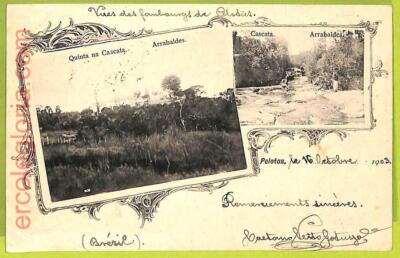 Vues des faubourgs de Pelotas.
Quinta na Cascata. Arrabaldes.
Cascata. Arrabaldes.
Pelotas, le 16 Octobre 1903
Remerciements sincères.
(Brézil).
Caetano
ercolegloria.com